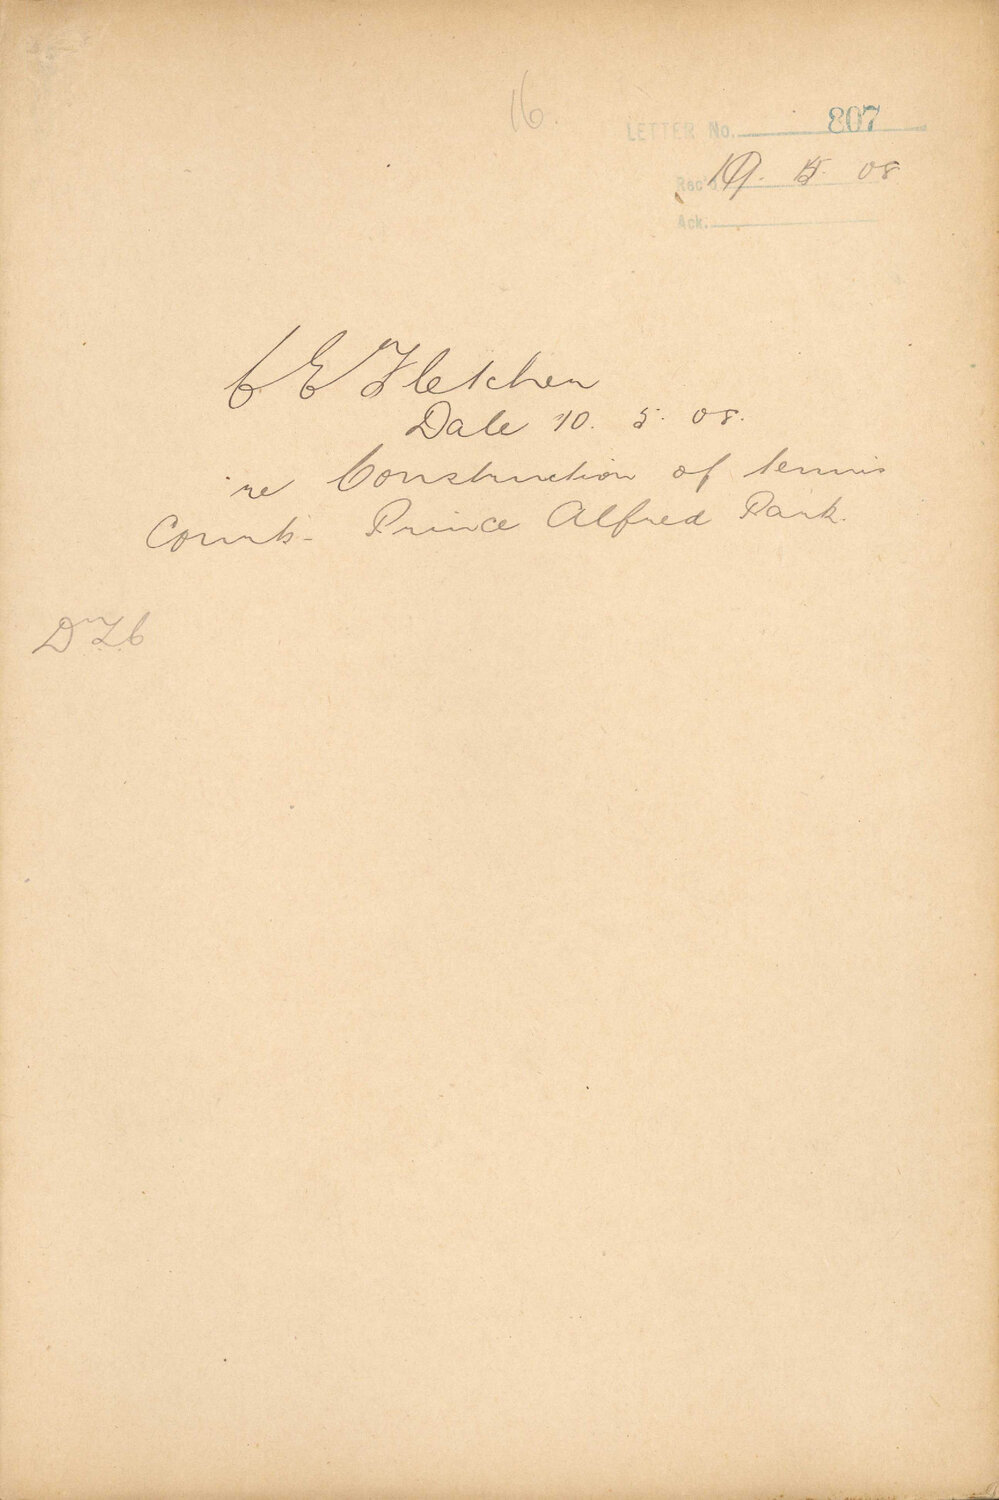 16.
LETTER No. 807
Rec'd 19. 5. 08
Ack.
C E Fletcher
Date 10. 5. 08.
re Construction of tennis
Courts - Prince Alfred Park.